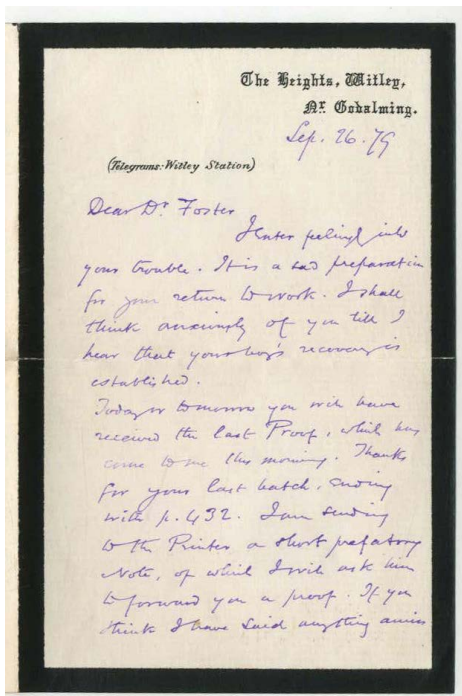 The Heights, Witley,
Nr. Godalming.
Sep. 26. 79
(Telegrams: Witley Station)
Dear Dr. Foster
I enter feelingly into
your trouble. It is a sad preparation
for your return to work. I shall
think anxiously of you till I
hear that your boy's recovery is
established.
Today or tomorrow you will have
received the last Proof, which has
come to me this morning. Thanks
for your last batch, ending
with p. 432. I am sending
to the Printer a short prefatory
Note, of which I will ask him
to forward you a proof. If you
think I have said anything amiss